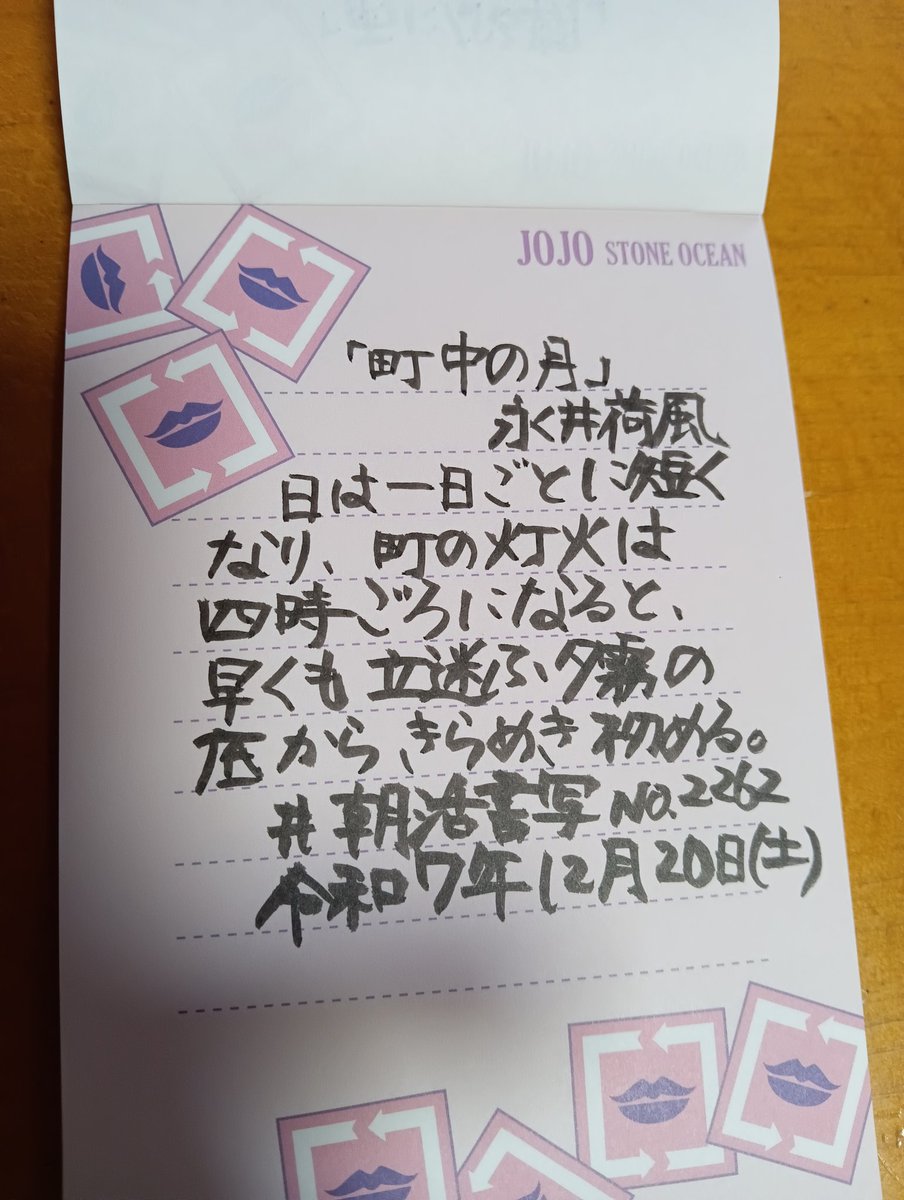 JOJO STONE OCEAN
「町中の月」
永井荷風
日は一日ごとに短く
なり、町の灯火は
四時ごろになると、
早くも立迷ふ夕霧の
底からきらめき初める。
#朝活書写 NO.2262
令和7年12月20日(土)